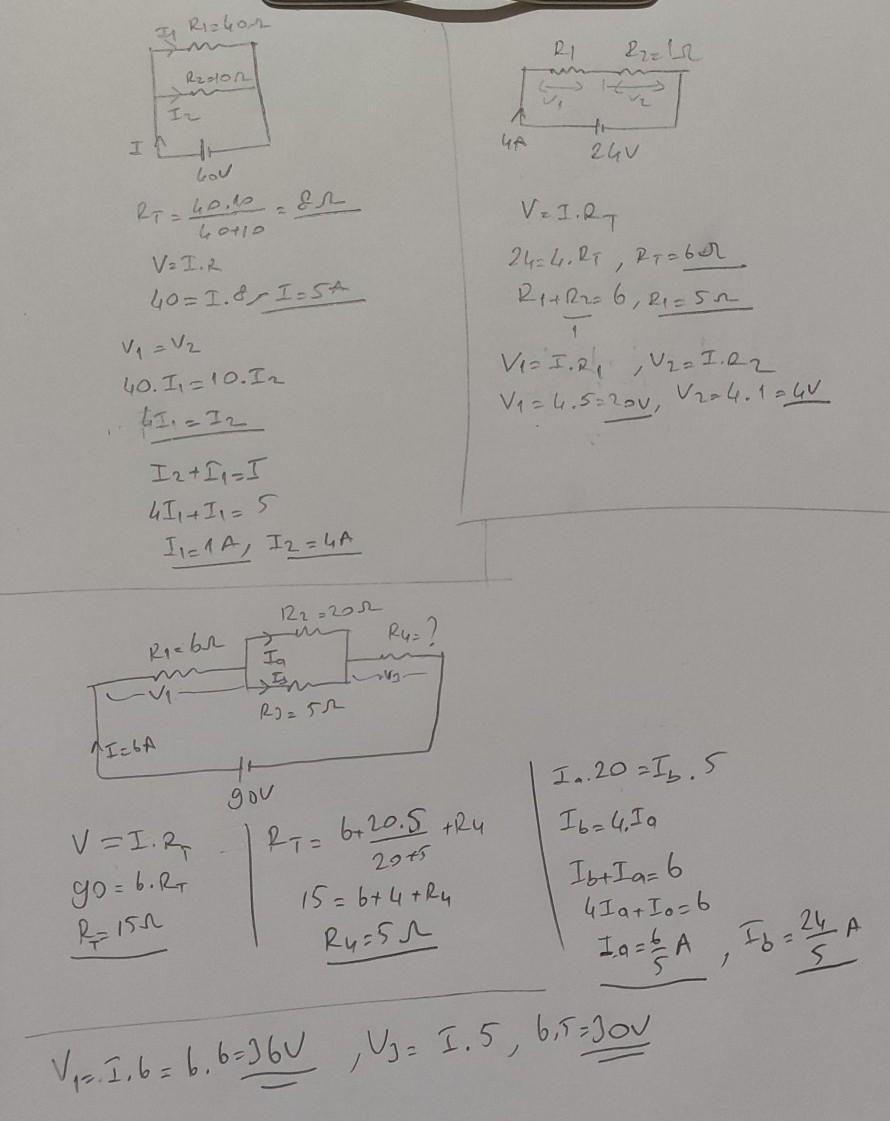 I₁ R₁=40Ω
R₂=10Ω
I₂
I
40V
R_T = 40.10 / 40+10 = 8Ω
V=I.R
40=I.8, I=5A
V₁=V₂
40.I₁=10.I₂
4I₁=I₂
I₂+I₁=I
4I₁+I₁=5
I₁=1A, I₂=4A
R₁ R₂=1Ω
V₁ V₂
4A
24V
V=I.R_T
24=4.R_T, R_T=6Ω
R₁+R₂=6, R₁=5Ω
1
V₁=I.R₁, V₂=I.R₂
V₁=4.5=20V, V₂=4.1=4V
R₂=20Ω
R₁=6Ω R₄=?
Ia
Ib
V₁ V₃
R₃=5Ω
I=6A
90V
V=I.R_T
90=6.R_T
R_T=15Ω
R_T= 6+ 20.5 / 20+5 +R₄
15=6+4+R₄
R₄=5Ω
Ia.20=Ib.5
Ib=4.Ia
Ib+Ia=6
4Ia+Ia=6
Ia=6/5 A, Ib=24/5 A
V₁=I.6=6.6=36V, V₃=I.5, 6.5=30V